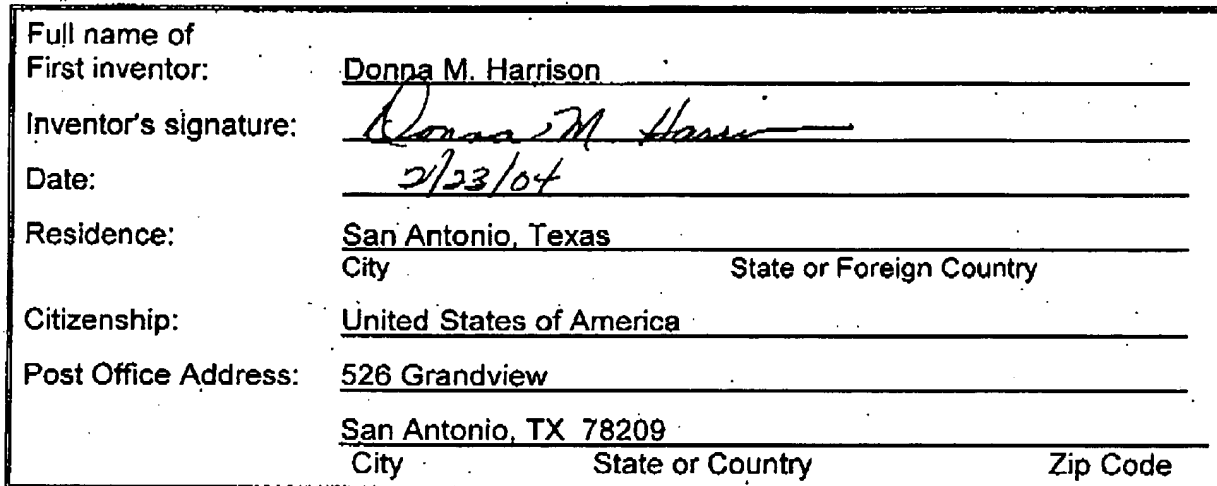 Full name of
First inventor: Donna M. Harrison
Inventor's signature: Donna M Harrison
Date: 2/23/04
Residence: San Antonio, Texas
City State or Foreign Country
Citizenship: United States of America
Post Office Address: 526 Grandview
San Antonio, TX 78209
City State or Country Zip Code